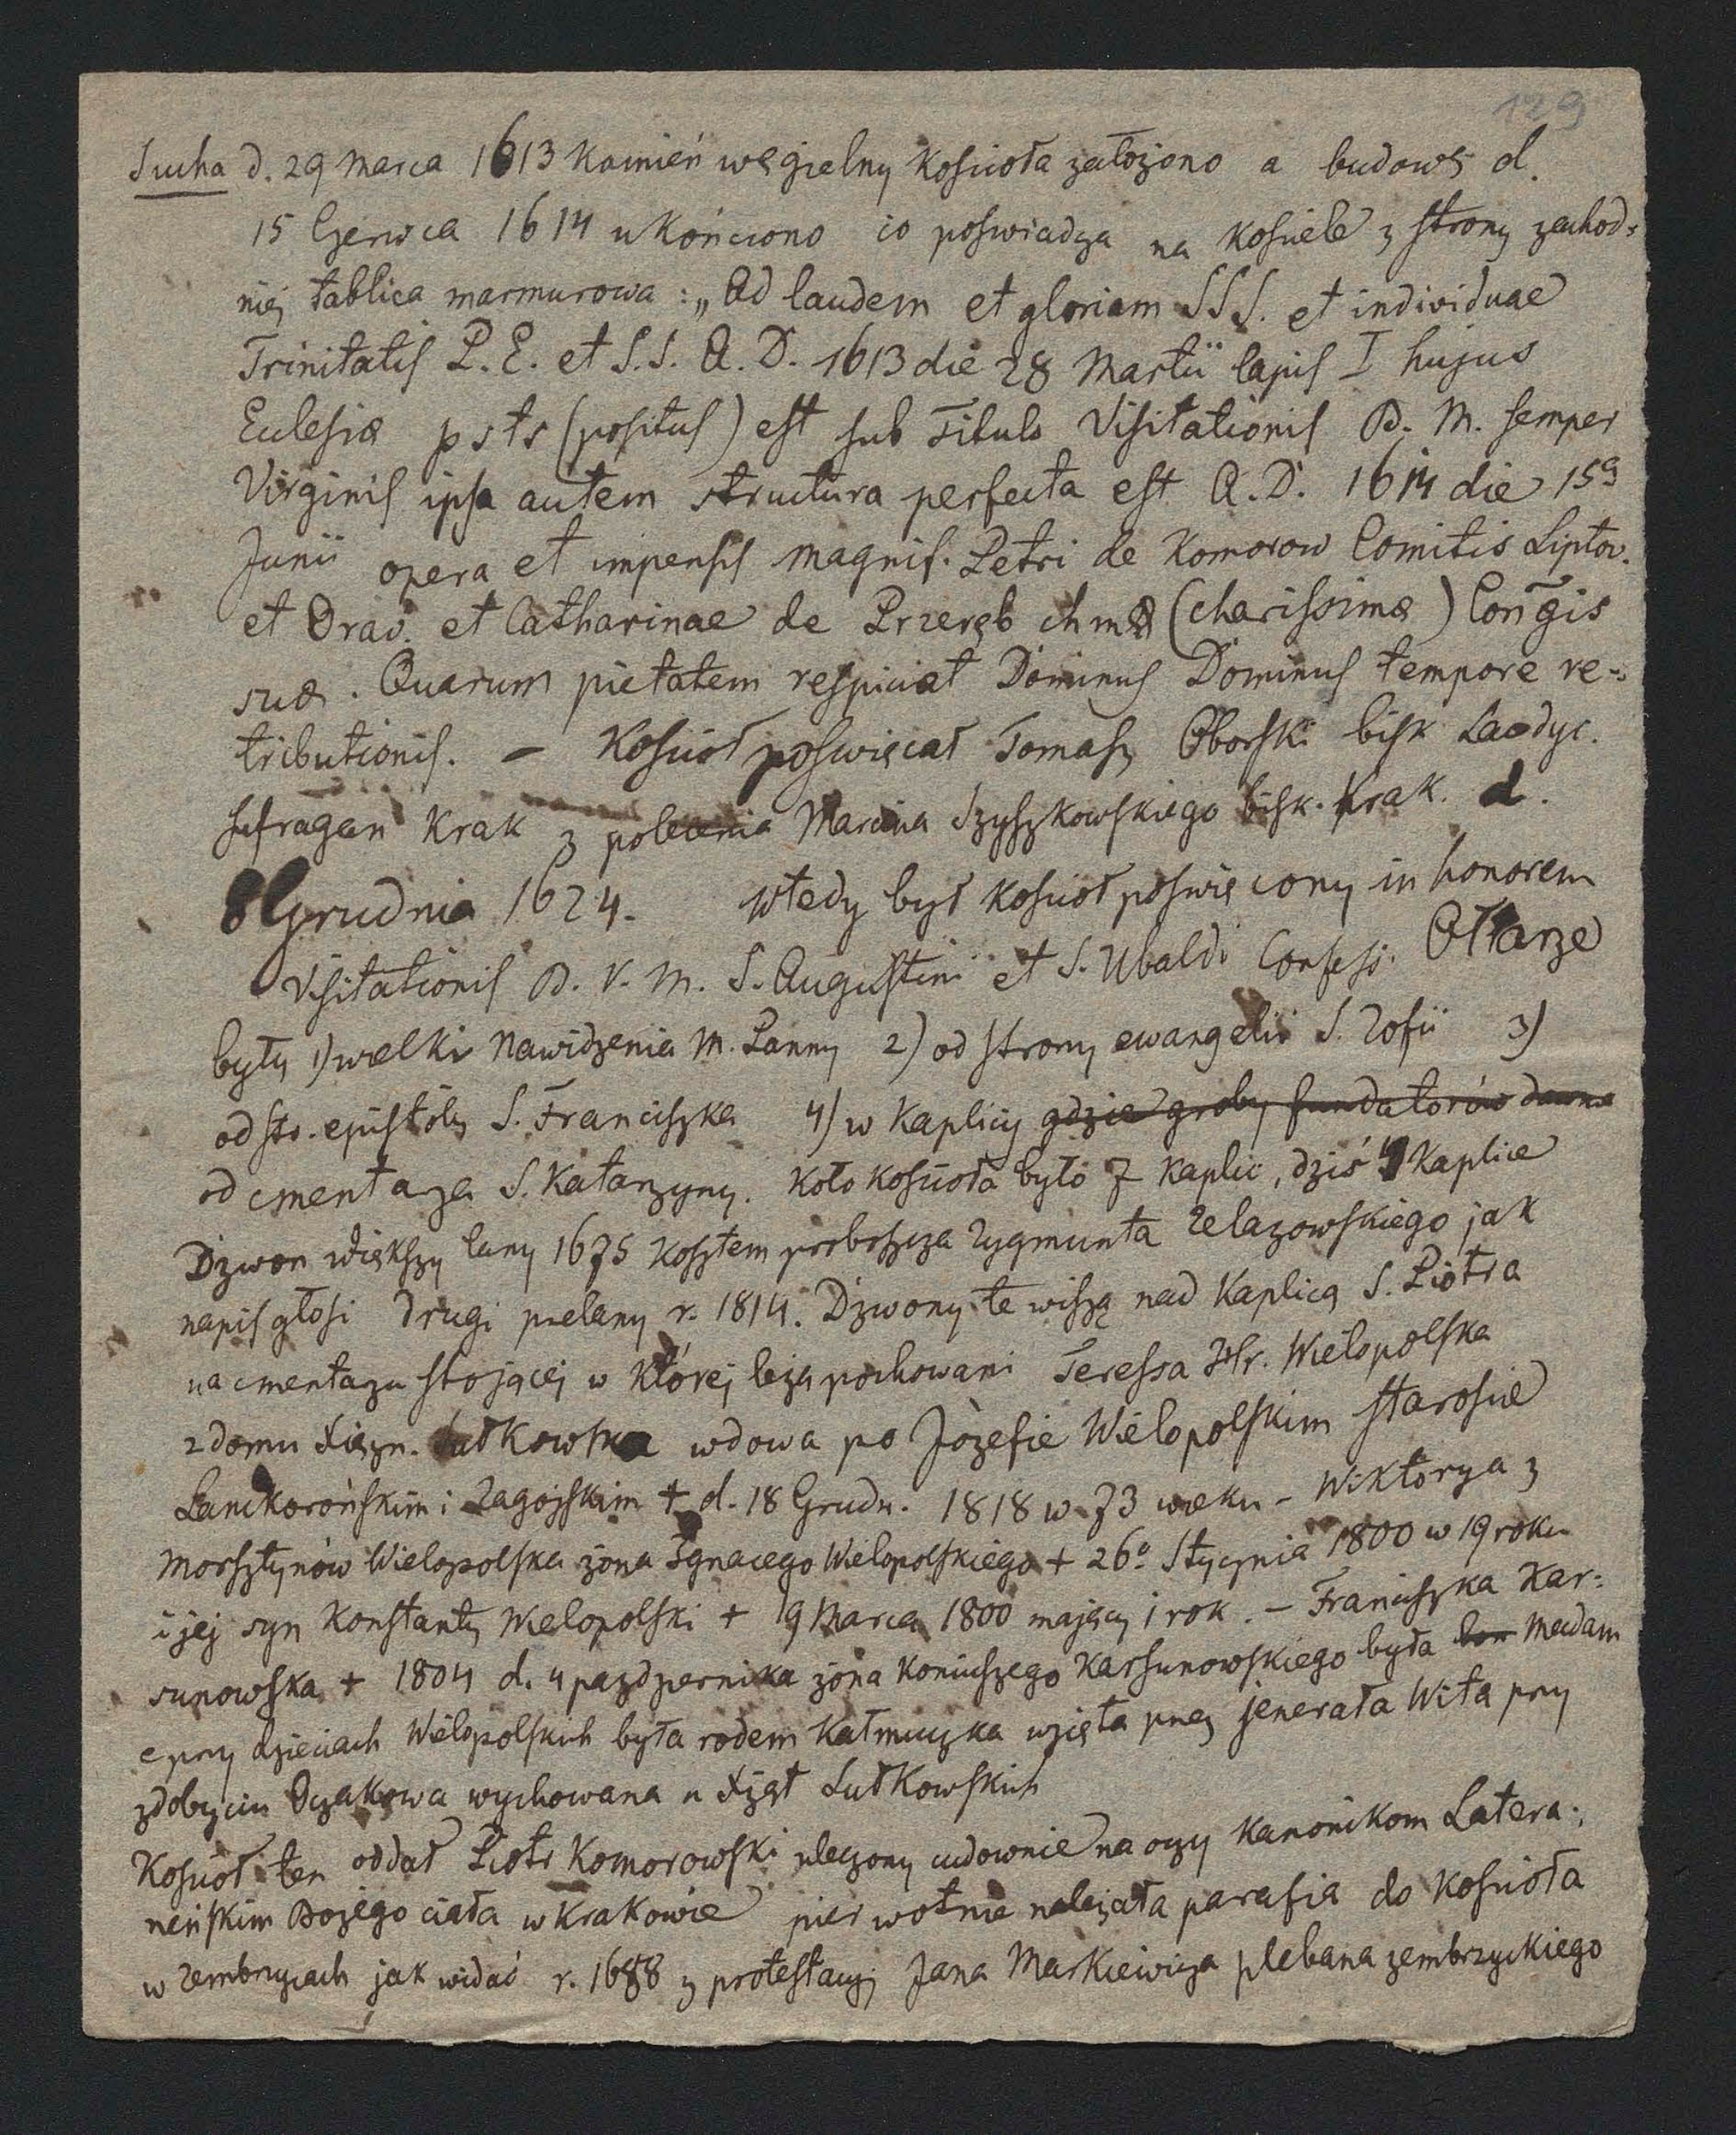 129
Sucha d. 29 Marca 1613 Kamień węgielny Kościoła założono a budowę d.
15 Czerwca 1614 ukończono co poświadza na Kościele z strony zachod=
niej tablica marmurowa: „Ad laudem et gloriam SSS. et individuae
Trinitatis P. E. et S.S. A. D. 1613 die 28 Martii lapis I hujus
Eclesiæ psts (positus) est sub Titulo Visitationis B. M. semper
Virginis ipsa autem structura perfecta est A. D. 1614 die 15a
Junii opera et impensis magnif. Petri de Komorow Comitis Liptov.
et Orav. et Catharinae de Przeręb chmæ (charissimæ) Congis
suæ. Quarum pietatem respiciat Dominus Dominus tempore re=
tributionis. – Kościoł poświęcał Tomasz Oborski bisk Laodyc.
sufragan Krak z polecenia Marcina Szyszkowskiego bisk. Krak. d.
8 Grudnia 1624. Wtedy był Kościoł poświęcony in honorem
Visitationis B. V. M. S. Augustini et S. Ubaldi Confess. Ołtarze
były 1) wielki Nawidzenia M. Panny 2) od strony ewangelii S. Zofii 3)
od str. epistoły S. Franciszka 4) w Kaplicy gdzie groby fundatorów dawne
od cmentarza S. Katarzyny. Koło Kościoła było 7 Kaplic, dziś 4 Kaplice
Dzwon większy lany 1675 Kosztem proboszcza Zygmunta Zelazowskiego jak
napis głosi drugi przelany r. 1814. Dzwony te wiszą nad Kaplicą S. Piotra
na cmentarzu stojącej w Której leżą pochowani Teressa Hr. Wielopolska
z domu Xiężn. Sułkowska wdowa po Józefie Wielopolskim Staroście
Lanckorońskim i Zagojskim + d. 18 Grudn. 1818 w 73 wieku – Wiktorya z
Morsztynów Wielopolska żona Ignacego Wielopolskiego + 26o Stycznia 1800 w 19 roku
i jej syn Konstanty Wielopolski + 19 Marca 1800 mający 1 rok. – Franciszka Kar=
sunowska + 1804 d. 4 pazdzernika żona Koniuszego Karsunowskiego była bon Madam
e przy dzieciach Wielopolskich była rodem Kałmuczka wzięta przez jenerała Wita przy
zdobyciu Oczakowa wychowana u Xżąt Sułkowskich
Kościoł ten oddał Piotr Komorowski uleczony cudownie na oczy Kanonikom Latera=
neńskim Bożego ciała w Krakowie pierwotnie należała parafia do Kościoła
w Zembrzycach jak widać r. 1688 z protestacyj Jana Markiewicza plebana zembrzyckiego